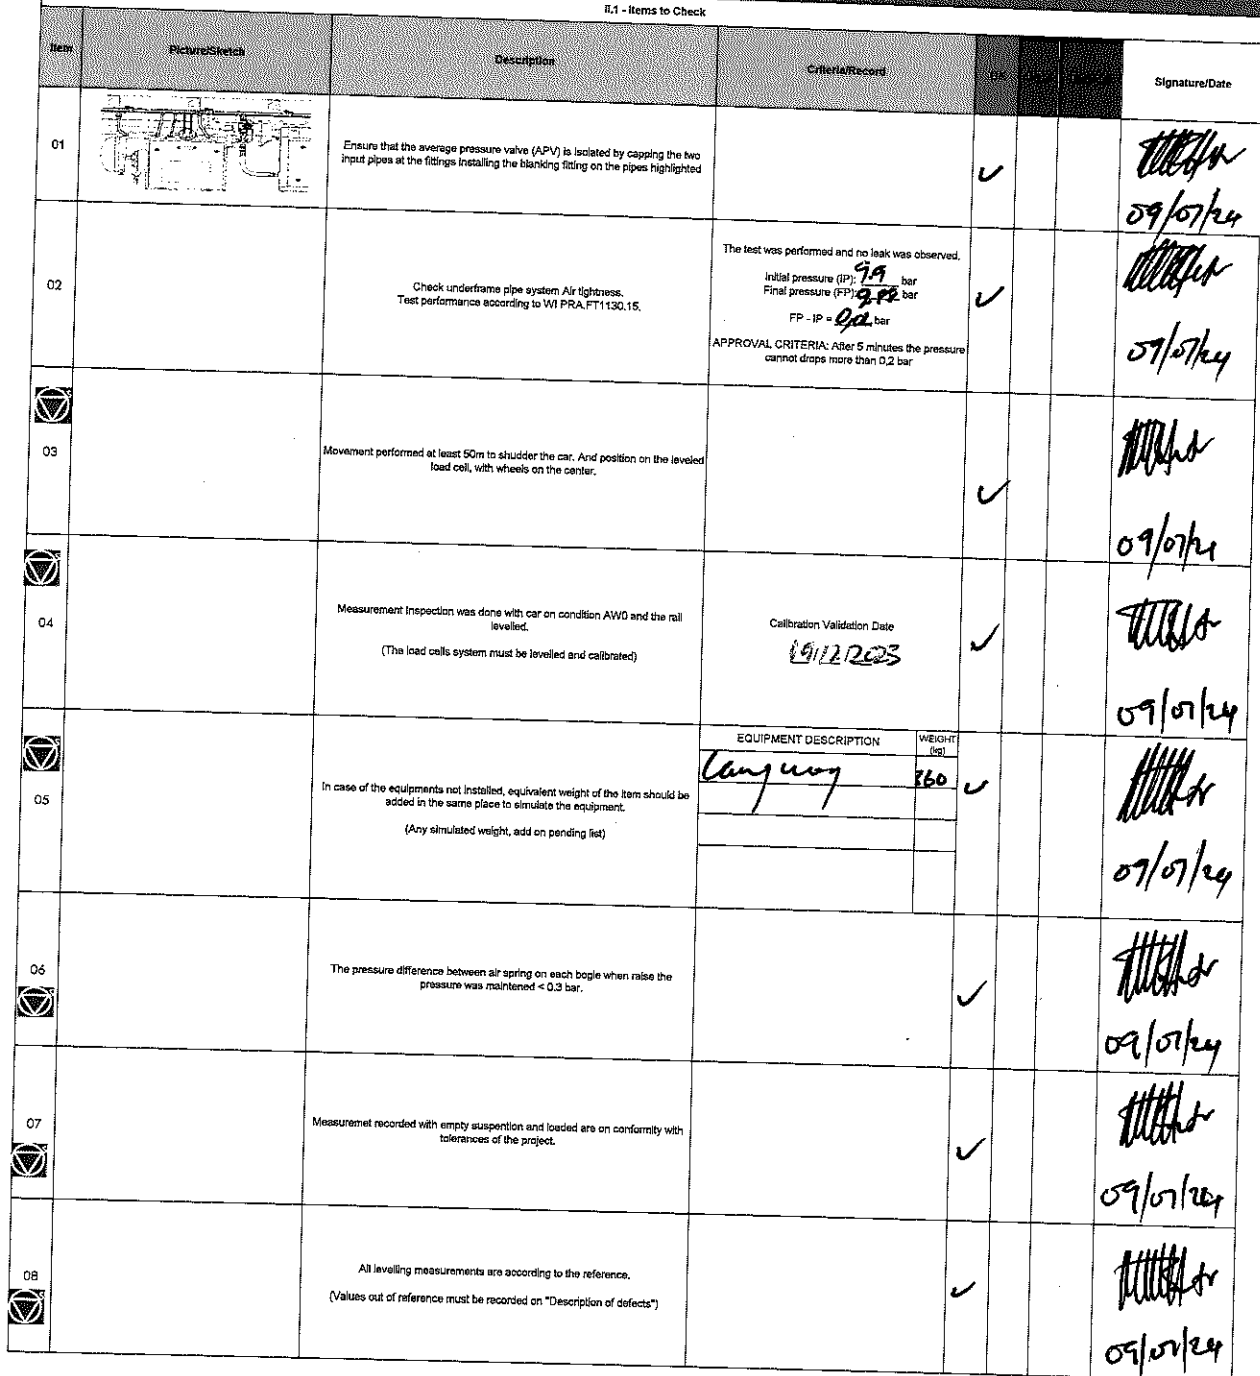 II.1 - Items to Check
Item
Picture/Sketch
Description
Criteria/Record
OK
Signature/Date
01
Ensure that the average pressure valve (APV) is isolated by capping the two
input pipes at the fittings installing the blanking fitting on the pipes highlighted
✓
09/07/24
02
Check underframe pipe system Air tightness.
Test performance according to WI PRA.FT1130.15.
The test was performed and no leak was observed.
Initial pressure (IP): 9.9 bar
Final pressure (FP): bar
FP - IP = bar
APPROVAL CRITERIA: After 5 minutes the pressure
cannot drops more than 0,2 bar
✓
09/07/24
03
Movement performed at least 50m to shudder the car. And position on the leveled
load cell, with wheels on the center.
✓
09/07/24
04
Measurement Inspection was done with car on condition AW0 and the rail
levelled.
(The load cells system must be levelled and calibrated)
Calibration Validation Date
19/12/2023
✓
09/07/24
05
In case of the equipments not installed, equivalent weight of the item should be
added in the same place to simulate the equipment.
(Any simulated weight, add on pending list)
EQUIPMENT DESCRIPTION
WEIGHT
(kg)
360
✓
09/07/24
06
The pressure difference between air spring on each bogie when raise the
pressure was maintened < 0.3 bar.
✓
09/07/24
07
Measuremet recorded with empty suspention and loaded are on conformity with
tolerances of the project.
✓
09/07/24
08
All levelling measurements are according to the reference.
(Values out of reference must be recorded on "Description of defects")
✓
09/07/24